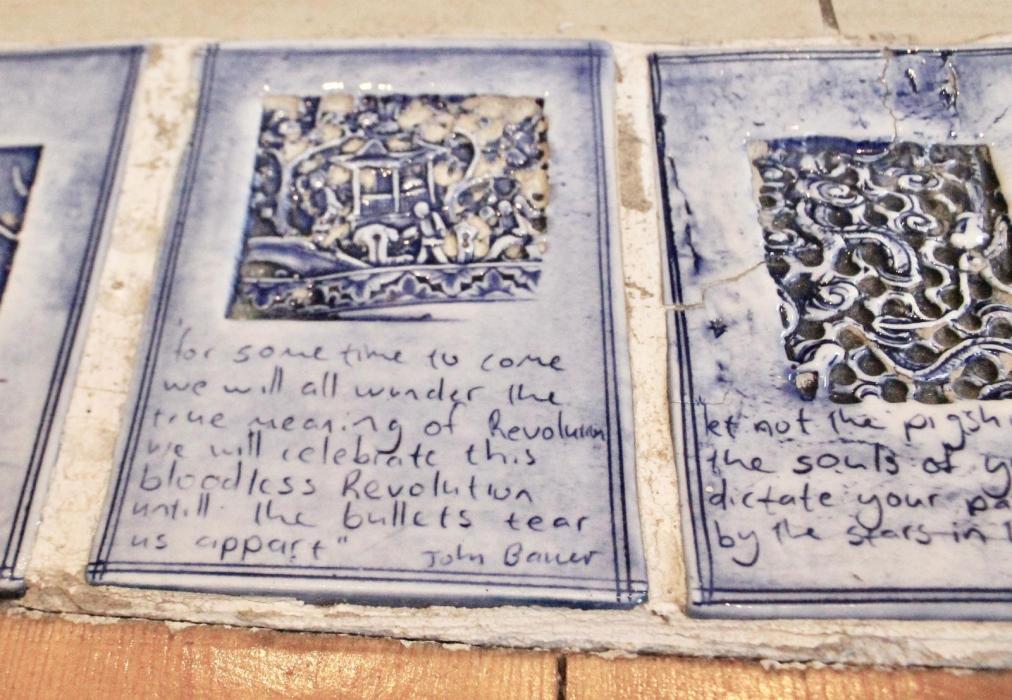 "for some time to come
we will all wunder the
true meaning of Revolution
we will celebrate this
bloodless Revolution
untill the bullets tear
us appart" John Bauer
let not the
the souls of
dictate your
by the stars in